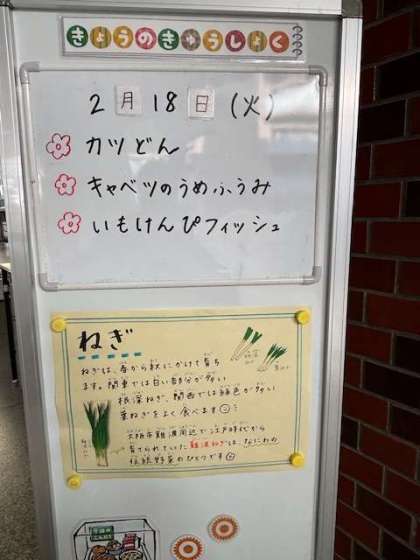 きょうのきゅうしょく
2月18日(火)
カツどん
キャベツのうめふうみ
いもけんぴフィッシュ
ねぎ
ねぎは、春から秋にかけて育ち
ます。関東では白い部分が多い
根深ねぎ、関西では緑色が多い
葉ねぎをよく食べます
大阪市難波周辺で江戸時代から
育てられていた難波ねぎは、なにわの
伝統野菜のひとつです